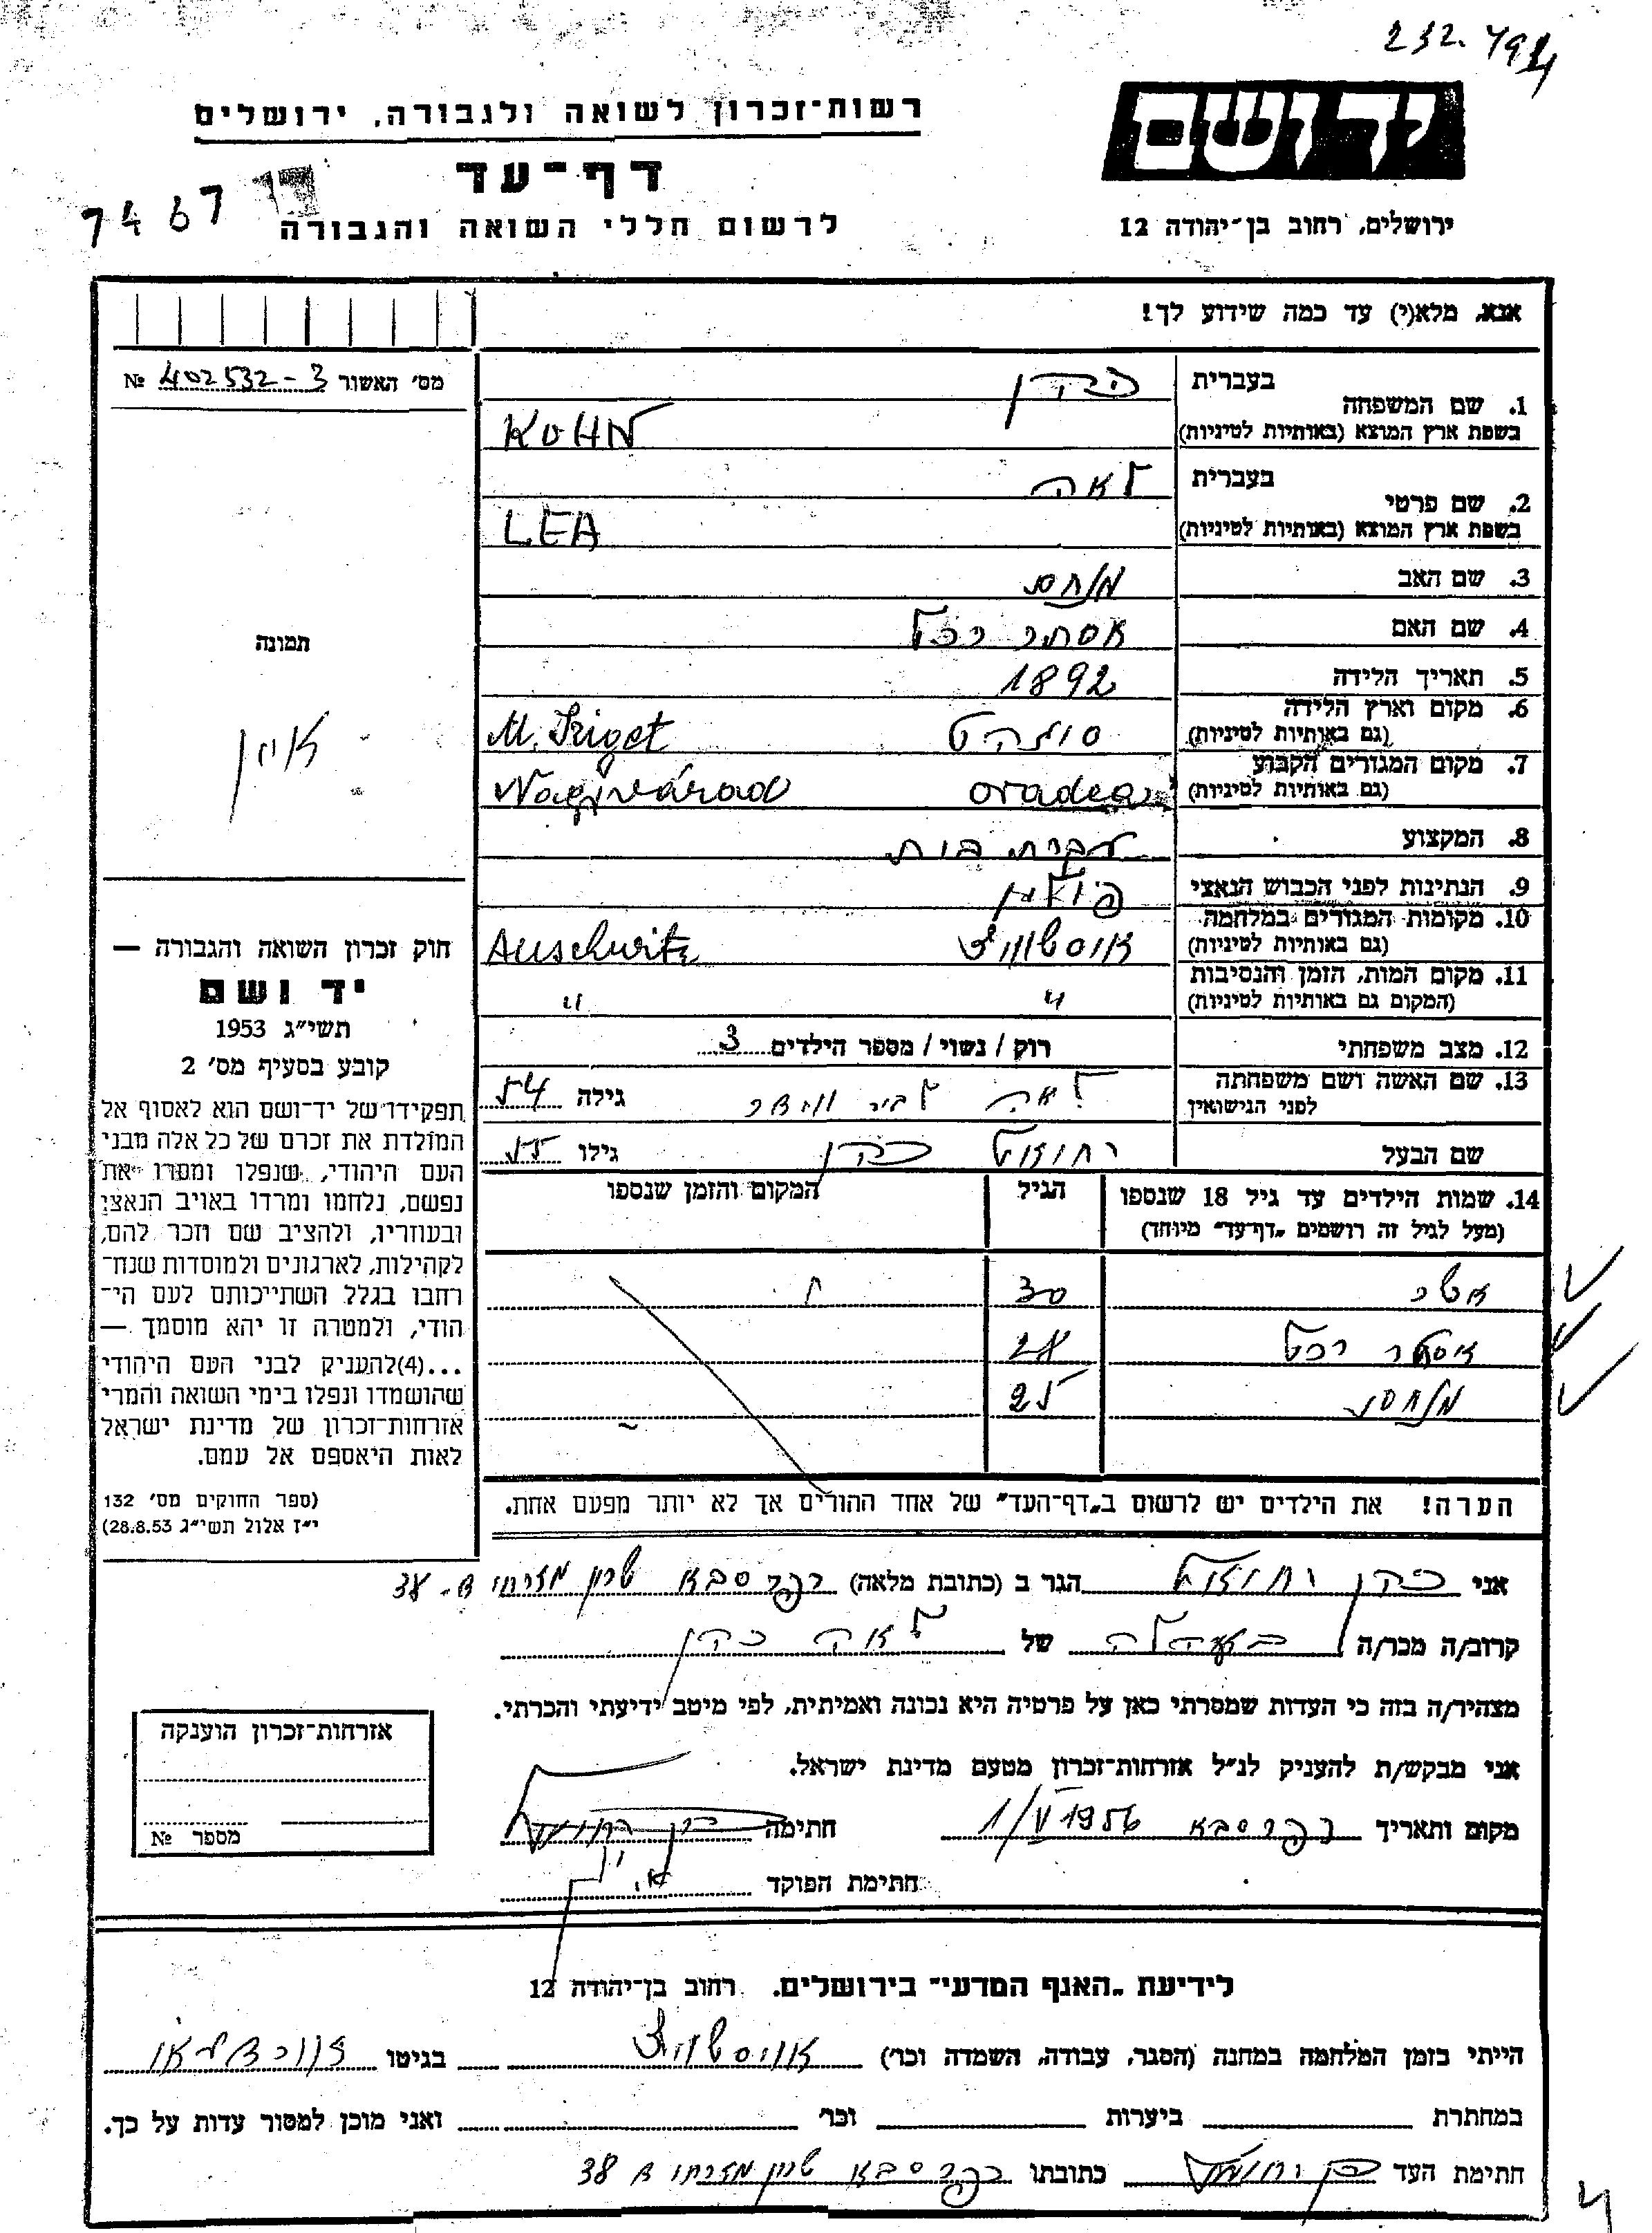 232. 794
רשות־זכרון לשואה ולגבורה, ירושלים
יד ושם
דף־עד
7467
לרשום חללי השואה והגבורה
ירושלים, רחוב בן־יהודה 12
אנא, מלא(י) עד כמה שידוע לך!
מס׳ האשור 402532-3 №
1. שם המשפחה בעברית כהן
בשפת ארץ המוצא (באותיות לטיניות) KOHN
2. שם פרטי בעברית לאה
בשפת ארץ המוצא (באותיות לטיניות) LEA
3. שם האב מנחם
4. שם האם אסתר רכל
תמונה
אין
5. תאריך הלידה 1892
6. מקום וארץ הלידה
(גם באותיות לטיניות) סיגהט M. Sziget
7. מקום המגורים הקבוע
(גם באותיות לטיניות) oradea Nagyvárad
8. המקצוע עקרת בית
9. הנתינות לפני הכבוש הנאצי
10. מקומות המגורים במלחמה
(גם באותיות לטיניות) אוסשוויץ Auschwitz
11. מקום המות, הזמן והנסיבות
(המקום גם באותיות לטיניות) " "
12. מצב משפחתי רוק / נשוי / מספר הילדים 3
13. שם האשה ושם משפחתה
לפני הנישואין לאה גילה 54
שם הבעל כהן גילו 55
14. שמות הילדים עד גיל 18 שנספו הגיל המקום והזמן שנספו
(מעל לגיל זה רושמים „דף־עד״ מיוחד)
אשר 30
אסטר רכל 28
מנחם 25
הערה! את הילדים יש לרשום ב„דף־העד״ של אחד ההורים אך לא יותר מפעם אחת.
חוק זכרון השואה והגבורה —
יד ושם
תשי״ג 1953
קובע בסעיף מס׳ 2
תפקידו של יד־ושם הוא לאסוף אל
המולדת את זכרם של כל אלה מבני
העם היהודי, שנפלו ומסרו את
נפשם, נלחמו ומרדו באויב הנאצי
ובעוזריו, ולהציב שם וזכר להם,
לקהילות, לארגונים ולמוסדות שנח־
רחבו בגלל השתייכותם לעם הי־
הודי, ולמטרה זו יהא מוסמך —
...(4)להעניק לבני העם היהודי
שהושמדו ונפלו בימי השואה והמרי
אזרחות־זכרון של מדינת ישראל
לאות היאספם אל עמם.
(ספר החוקים מס׳ 132
י״ז אלול תשי״ג 28.8.53)
אני כהן הגר ב (כתובת מלאה) כפר סבא שכון מזרחי ב-38
קרוב/ה מכר/ה של לאה כהן
מצהיר/ה בזה כי העדות שמסרתי כאן על פרטיה היא נכונה ואמיתית, לפי מיטב ידיעתי והכרתי.
אני מבקש/ת להעניק לנ״ל אזרחות־זכרון מטעם מדינת ישראל.
מקום ותאריך כפר סבא 1/V 1956 חתימה
חתימת הפוקד
אזרחות־זכרון הוענקה
מספר №
לידיעת „האנף המדעי״ בירושלים. רחוב בן־יהודה 12
הייתי בזמן המלחמה במחנה (הסגר, עבודה, השמדה וכר׳) אוויסשוויץ בגיטו
במחתרת ביערות וכר׳ ואני מוכן למסור עדות על כך.
חתימת העד כתובתו כפר סבא שכון מזרחי ב 38